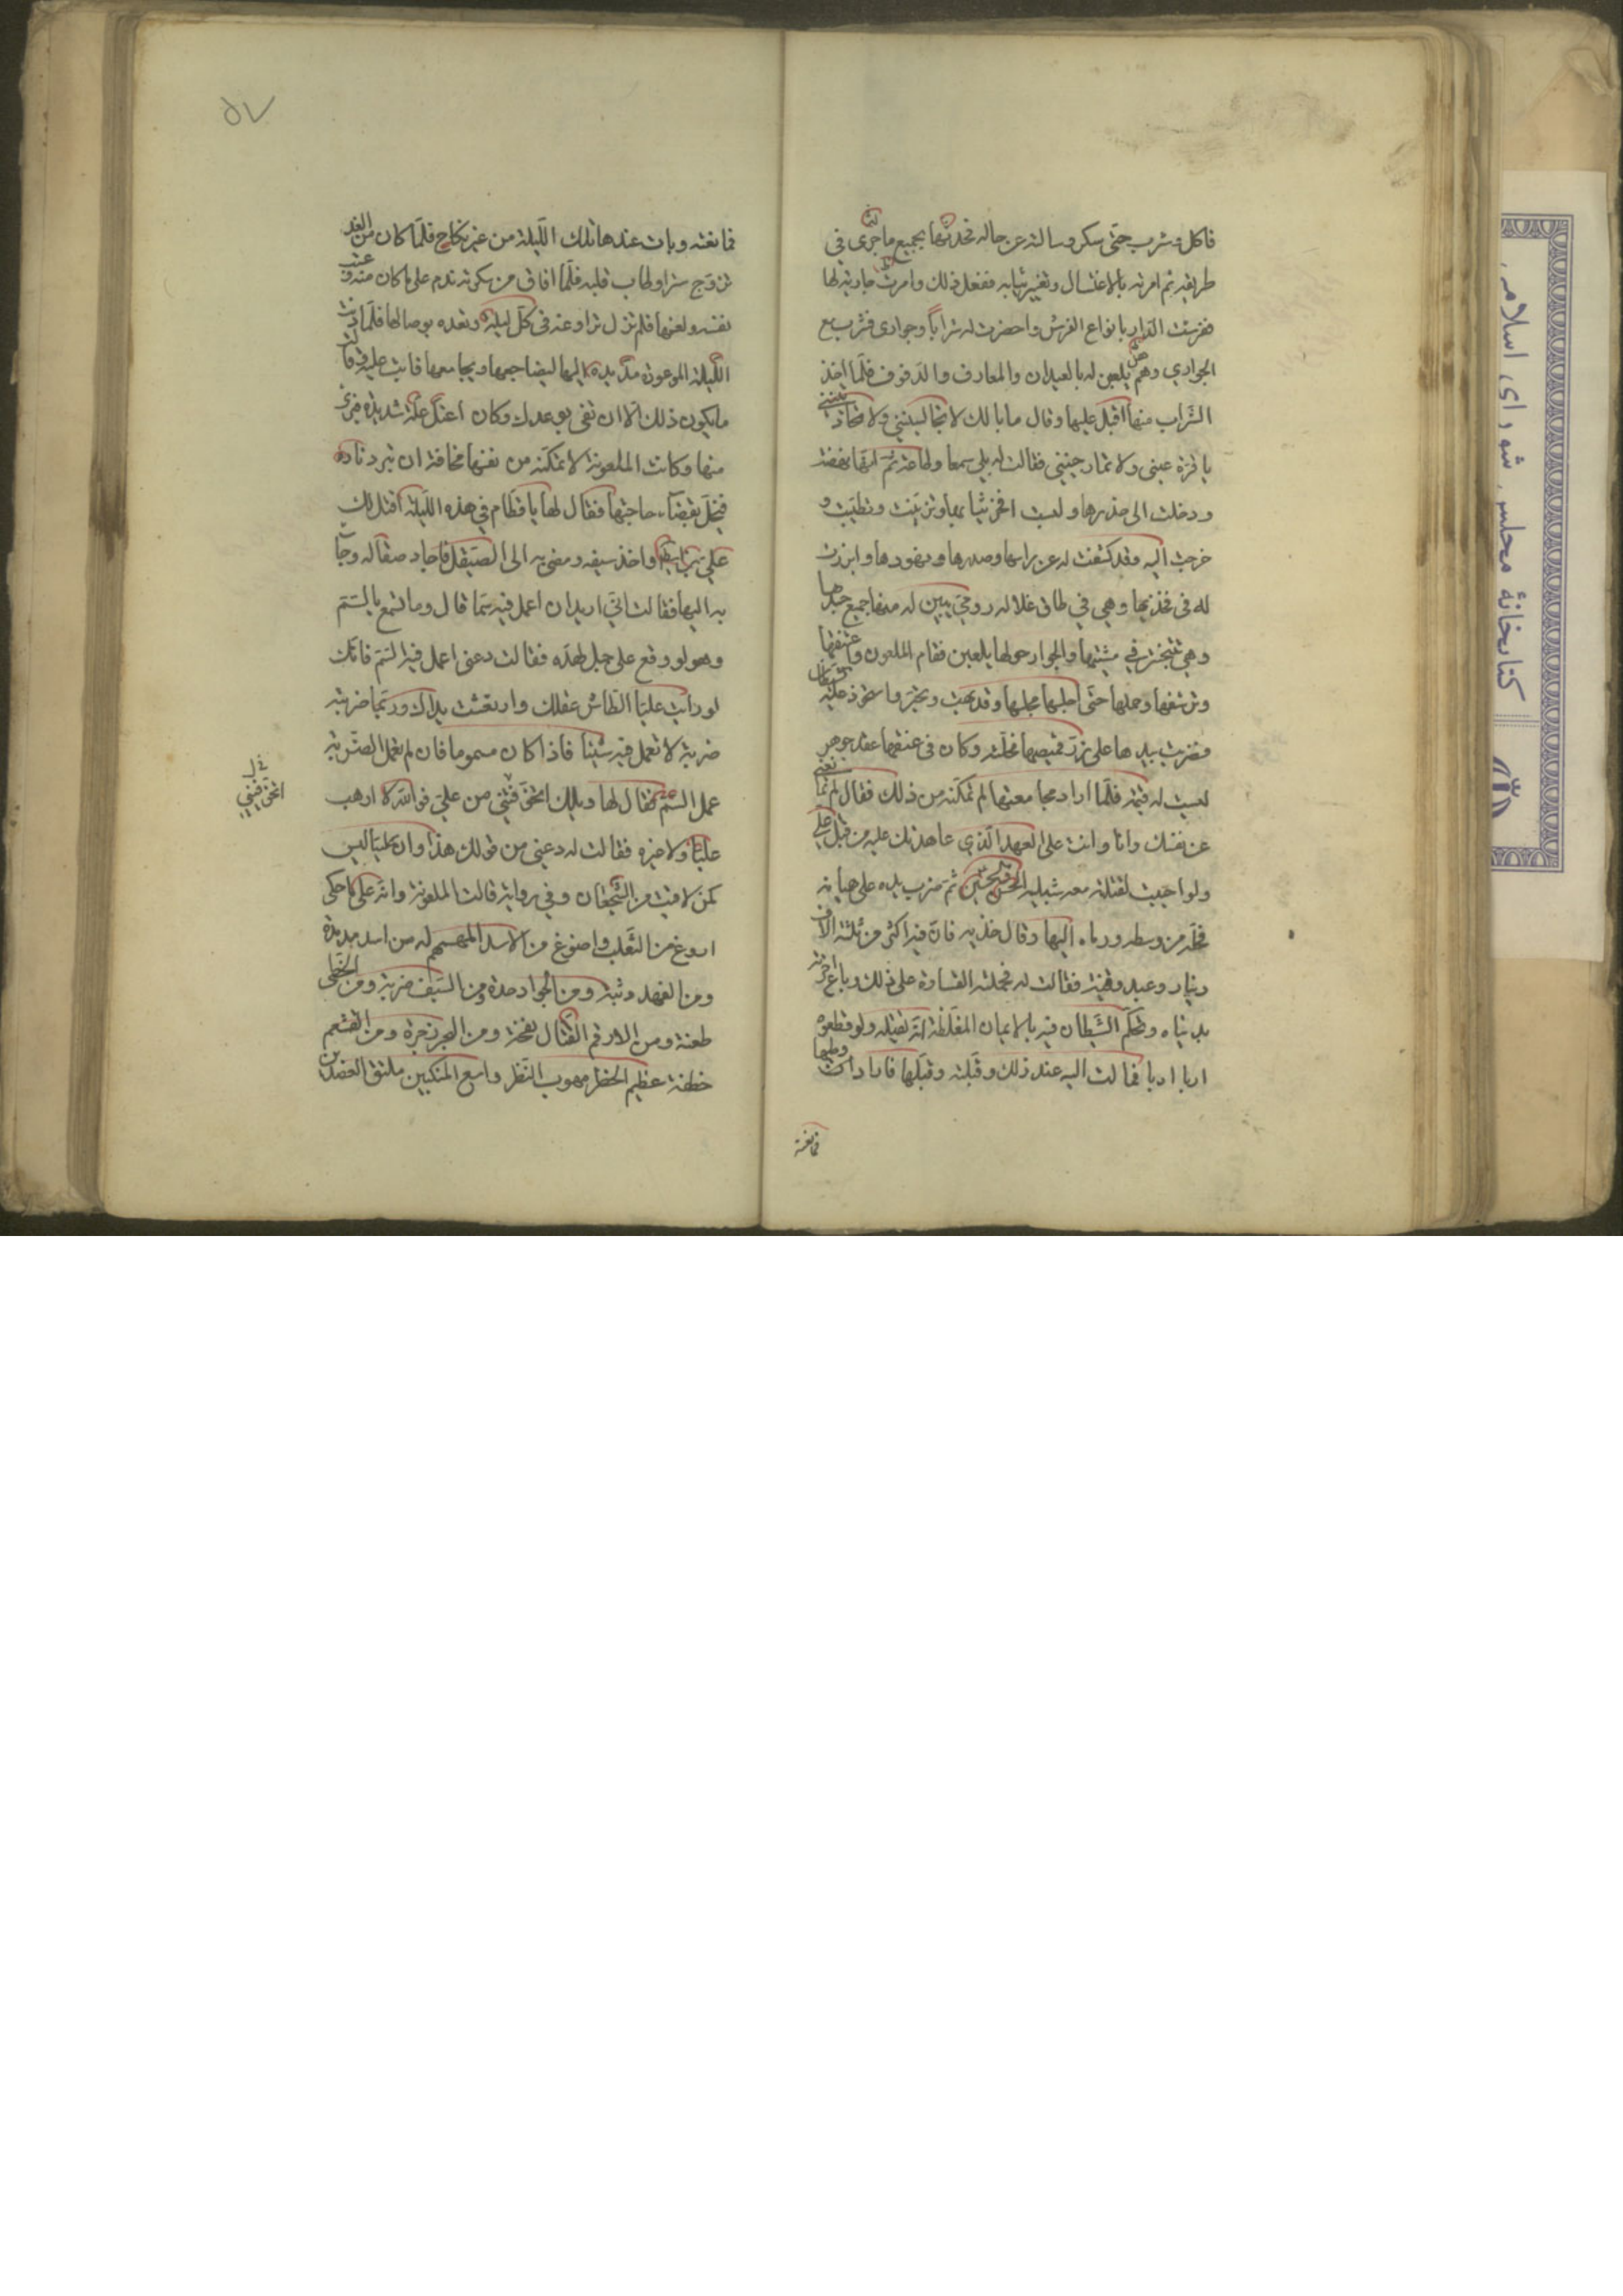 فاكل وشرب حتى سكر وسالته عن حاله فحدثها بجميع ما جرى له في
طريقه ثم امرته بالاغتسال وتغيير ثيابه ففعل ذلك وامرت جاريته لها
ففرشت الدار بانواع الفرش واحضرت له شرابا وجوارى فشرب مع
الجوارى وهم يلعبن له بالعيدان والمعازف والدفوف فلما اخذ
الشراب منها اقبل عليها وقال ما بالك لا تجالسينني ولا تحادثينني
يا قرة عيني ولا تمازحينني فقالت له بلى سمعا وطاعة ثم انها نهضت
ودخلت الى خدرها ولبست افخر ثيابها وتزينت وتطيبت و
خرجت اليه وقد كشفت له عن راسها وصدرها ونهودها وابرزت
له فى فخذيها وهي في طاق غلاله رومي يبين له منها جميع جسدها
وهي تتبختر في مشيتها والجوار حولها يلعبن فقام الملعون واعتنقها
وترشفها وحملها حتى اجلسها مجلسها وقد بهت وتحير واستحوذ عليه الشيطان
فضربت بيدها على زر قميصها فحلته وكان فى عنقها عقد جوهر
ليست له قيمة فلما اراد مجامعتها لم تمكنه من ذلك فقال لم تمانعني
عن نفسك وانا وانت على العهد الذي عاهدتك عليه من قتل علي
ولو احببت لقتلت معه شبليه الحسن والحسين ثم ضرب يده على هميانه
فحله من وسطه ورماه اليها وقال خذيه فان فيه اكثر من ثلثة الاف
دينار وعبد وقينة فقالت له
بدنياه وتحكم الشيطان فيه بالايمان المغلظة انه يقتله ولو قطعوه
اربا اربا فمالت اليه عند ذلك وقبلته وقبلها فاراد وطيها
فمانعته
٥٧
فمانعته وبات عندها تلك الليلة من غير نكاح فلما كان من الغد
تزوج سرا وطاب قلبه فلما افاق من سكرته ندم على ما كان منه وعتب
نفسه ولعنها فلم تزل تراوغه فى كل ليلة وتعده بوصالها فلما دنت
الليلة الموعودة مد يده اليها ليضاجعها ويجامعها فابت عليه وقالت
ما يكون ذلك الا ان تفى بوعدك وكان اعتل علة شديدة فبرئ
منها وكانت الملعونة لا تمكنه من نفسها مخافة ان تبرد ناره
فيخل بقضاء حاجتها فقال لها يا قطام في هذه الليلة اقتل لك
علي بن ابيطالب واخذ سيفه ومضى به الى الصيقل فاجاد صقاله وجاء
به اليها فقالت اني اريد ان اعمل فيه سما قال وما تصنع بالسم
وهو لو وقع على جبل لهده فقالت دعني اعمل فيه السم فانك
لو رايت عليا لطاش عقلك وارتعشت يداك وربما ضربته
ضربة لا تعمل فيه شيئا فاذا كان مسموما فان لم تعمل الضربة
عمل السم فقال لها ويلك اتخوفينني من علي فوالله لا ارهب
عليا ولا غيره فقالت له دعني من قولك هذا وان عليا ليس
كمن لاقيت من الشجعان وفي رواية قالت الملعونة وانه على ما حكى
اروغ من الثعلب واصنوغ من الاسد
ومن الفهد وثبة ومن الجواد حدة ومن السيف ضربة ومن الخطى
طعنة ومن الارقم القتال نفخة ومن البحر زخرة ومن القشعم
خطفة عظيم الخطر مهوب النظر واسع المنكبين ملتف العضدين
خ ل
اتخوفينني
كتابخانهٔ مجلس شورای اسلامی